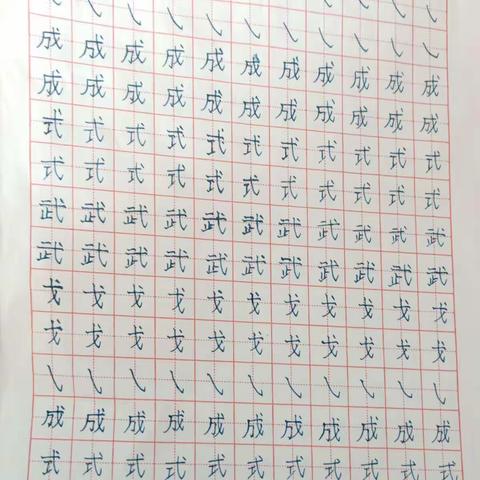 ㇂㇂㇂㇂㇂㇂㇂㇂㇂㇂㇂
成成成成成成成成成成成
成成成成成成成成成成成
式式式式式式式式式式式
式式式式式式式式式式式
武武武武武武武武武武武
武武武武武武武武武武武
戈戈戈戈戈戈戈戈戈戈戈
戈戈戈戈戈戈戈戈戈戈戈
㇂㇂㇂㇂㇂㇂㇂㇂㇂㇂㇂
成成成成成成成成成成成
式式式式式式式式式式式